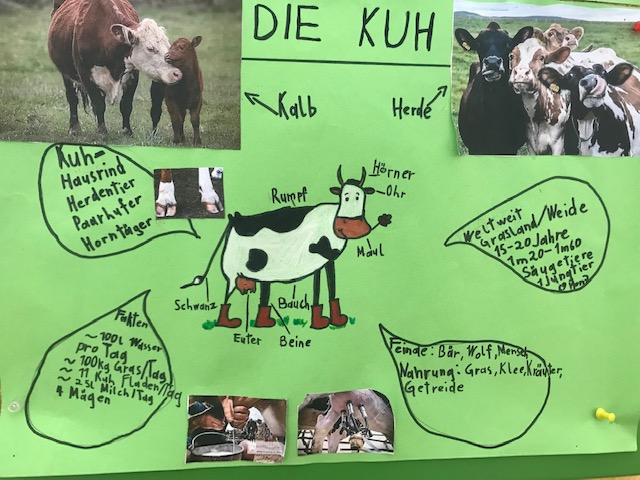 DIE KUH
Kalb
Herde
Kuh-
Hausrind
Herdentier
Paarhufer
Hornträger
Rumpf
Hörner
Ohr
Maul
Schwanz
Euter
Bauch
Beine
Weltweit
Grasland/Weide
15-20 Jahre
1m20-1m60
Säugetiere
1 Jungtier
Fakten
~ 100l Wasser
pro Tag
~ 100kg Gras/Tag
~ 11 Kuh Fladen/Tag
~ 25l Milch/Tag
4 Mägen
Feinde: Bär, Wolf, Mensch
Nahrung: Gras, Klee, Kräuter,
Getreide